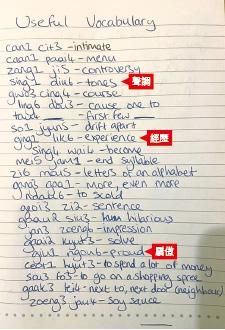 Useful Vocabulary
can1 cit3 - intimate
caan1 paai4 - menu
zang1 ji5 - controversy
sing1 diu6 - tones
聲調
gwo3 cing4 - course
ling6 dou3 - cause one to
first few
so1 jyun5 - drift apart
ging1 lik6 - experience
經歷
Sing4 wai4 - become
mei5 jam1 - end syllable
zi6 mou5 - letters of an alphabet
more, even more
to scold
zi2 - sentence
siu3 - hilarious
jan3 zoeng6 - impression
gaai2 kyut3 - solve
giu1 ngou6 - proud
驕傲
to spend a lot of money
sou3 fo3 - to go on a shopping spree
gaak3 lei4 - next to, next door (neighbour)
soy sauce